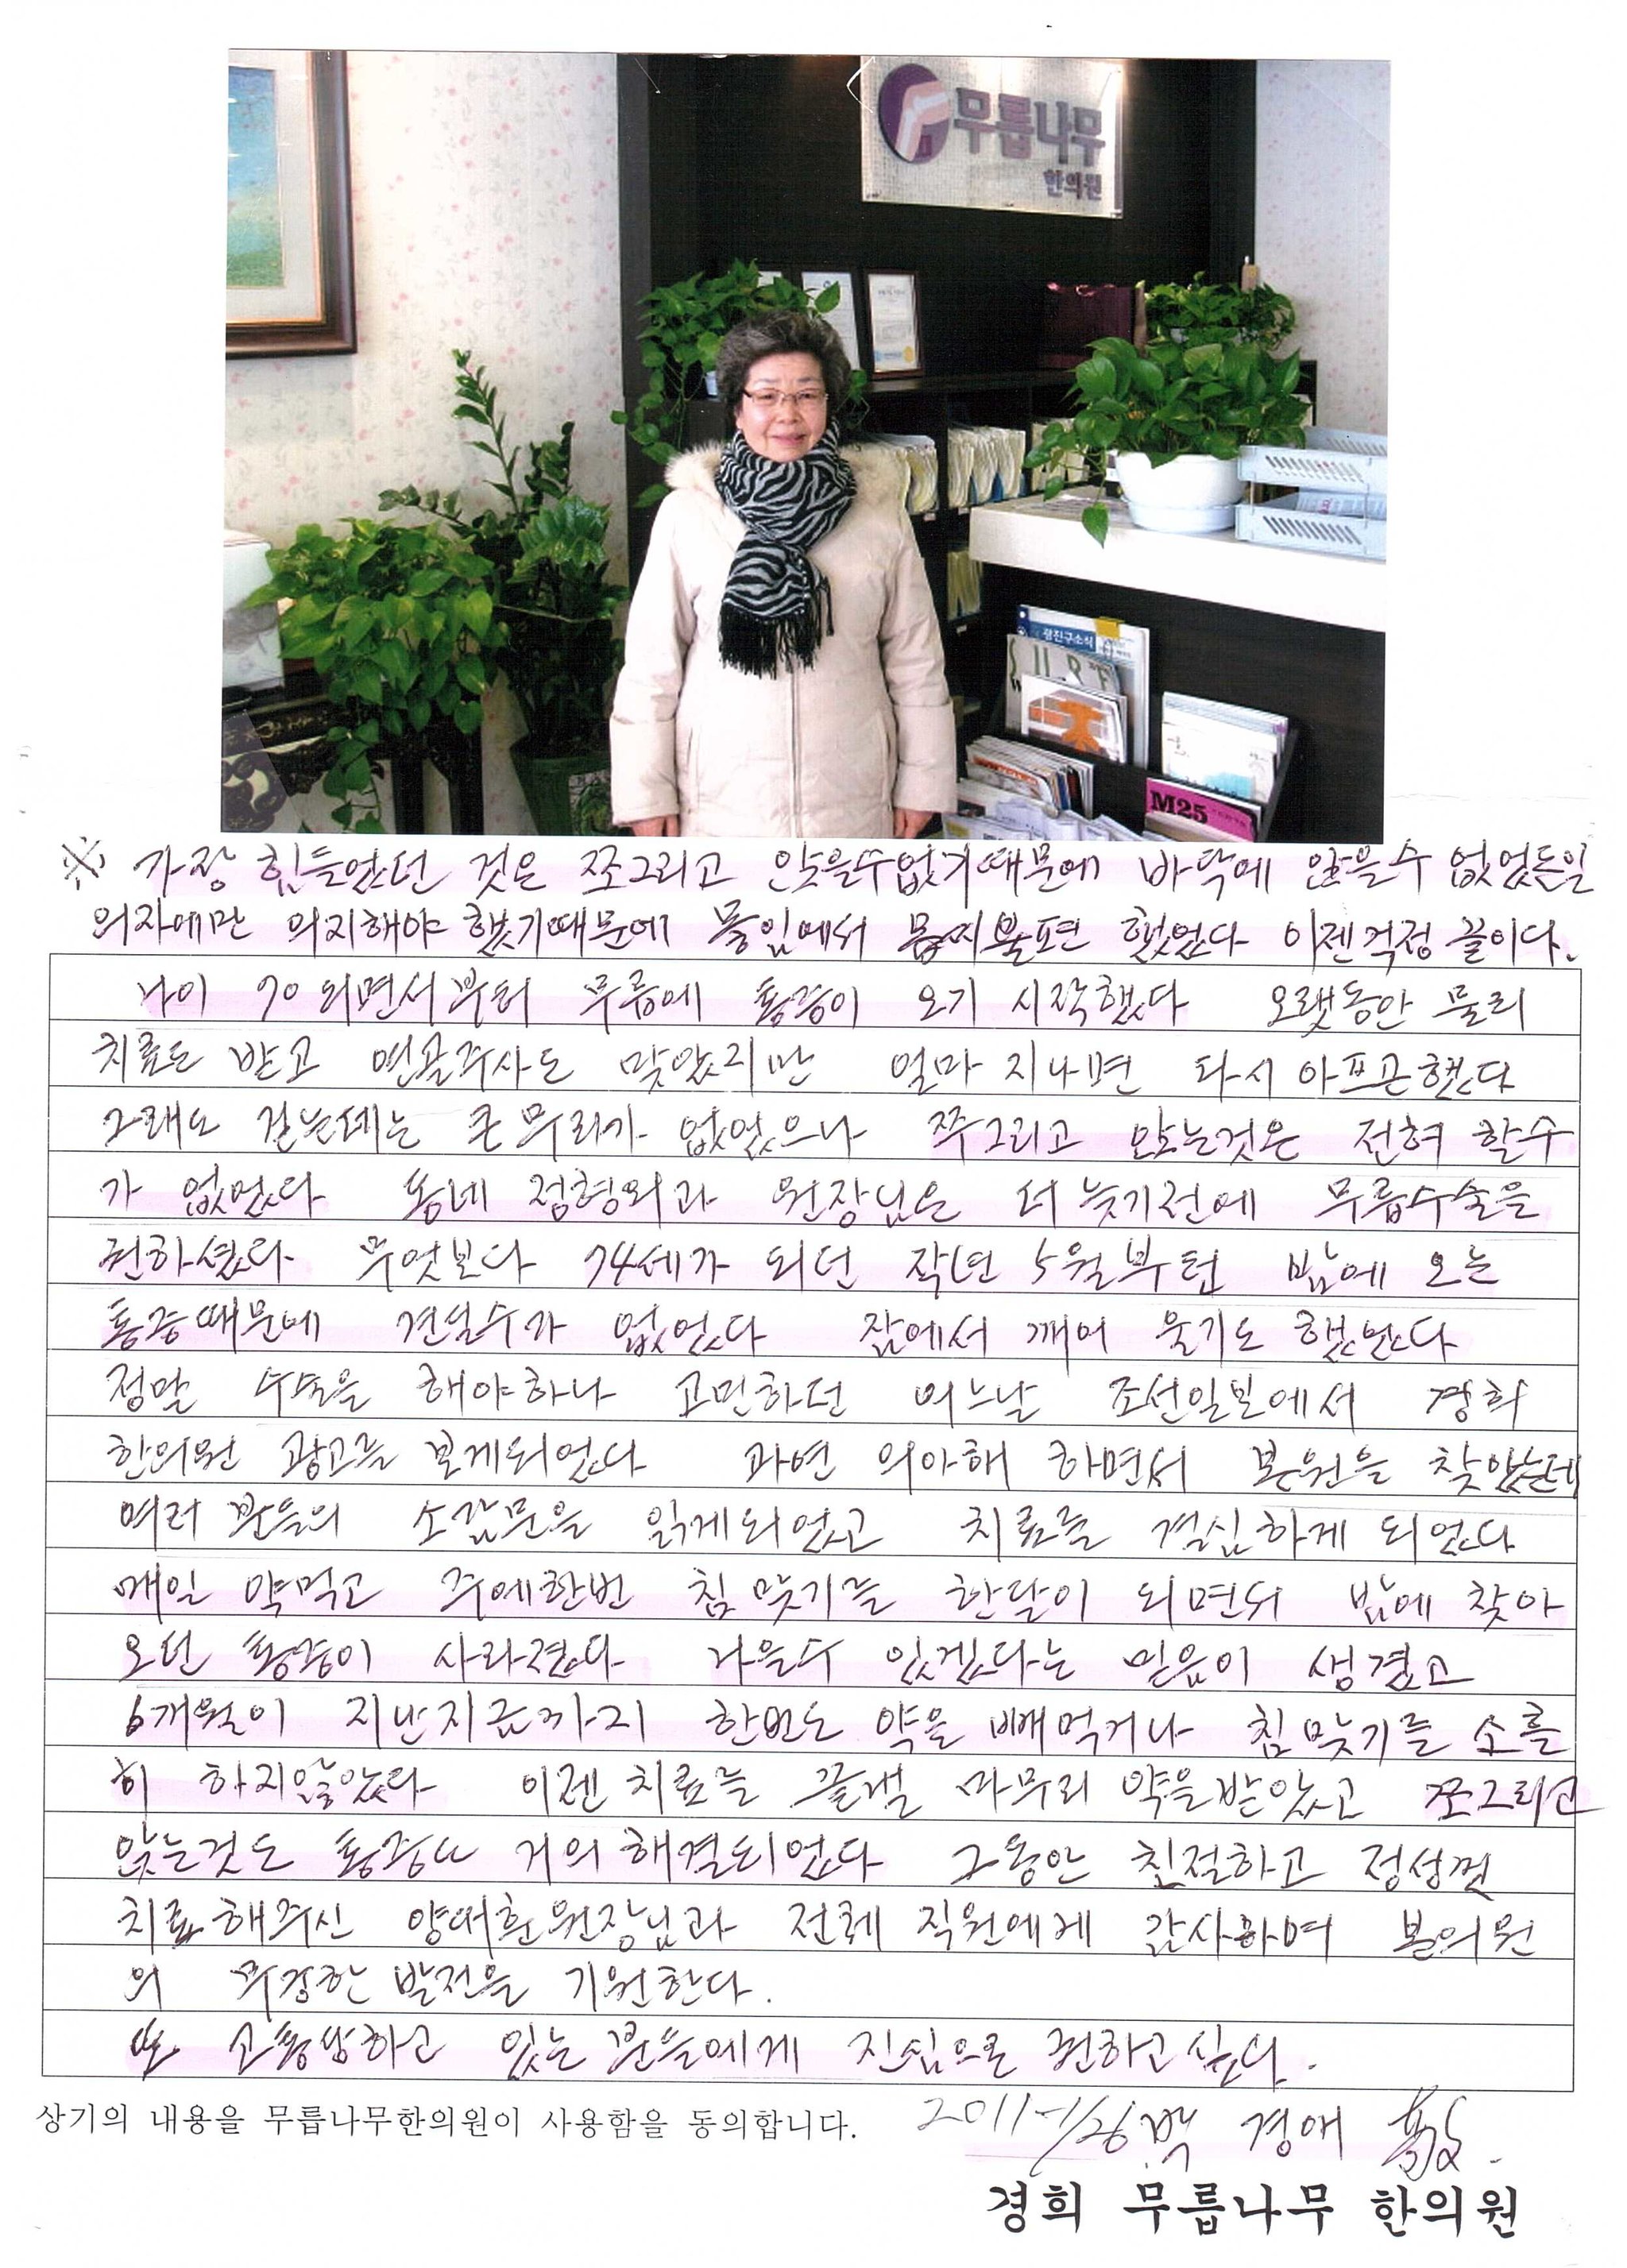 무릅나무
한의원
광진구소식
SURE
M25
※ 가장 힘들었던 것은 쪼그리고 앉을수없기때문에 바닥에 앉을수 없었든일
의자에만 의지해야 했기때문에 모임에서 몹씨불편 했었다 이젠걱정 끝이다.
나이 70 되면서부터 무릎에 통증이 오기 시작했다 오랫동안 물리
치료도 받고 연골주사도 맞았지만 얼마 지나면 다시 아프곤했다
그래도 걷는데는 큰무리가 없었으나 쭈그리고 앉는것은 전혀 할수
가 없었다 동네 정형외과 원장님은 더 늦기전에 무릅수술을
권하셨다 무엇보다 74세가 되던 작년 5월부턴 밤에 오는
통증때문에 견딜수가 없었다 잠에서 깨어 울기도 했었다
정말 수술을 해야하나 고민하던 어느날 조선일보에서 경희
한의원 광고를 보게되었다 과연 의아해 하면서 본원을 찾았는데
여러 분들의 소감문을 읽게되었고 치료를 결심하게 되었다
매일 약먹고 주에한번 침 맞기를 한달이 되면서 밤에 찾아
오던 통증이 사라졌다 나을수 있겠다는 믿음이 생겼고
6개월이 지난지금까지 한번도 약을 빼먹거나 침맞기를 소흘
히 하지않았다 이젠 치료를 끝낼 마무리 약을받았고 쪼그리고
앉는것도 통증도 거의해결되었다 그동안 친절하고 정성껏
치료해주신 양대환원장님과 전체 직원에게 감사하며 본의원
의 무궁한 발전을 기원한다.
또 고통당하고 있는분들에게 진심으로 권하고싶다.
상기의 내용을 무릅나무한의원이 사용함을 동의합니다.
2011-1/26 백 경애
경희 무릅나무 한의원